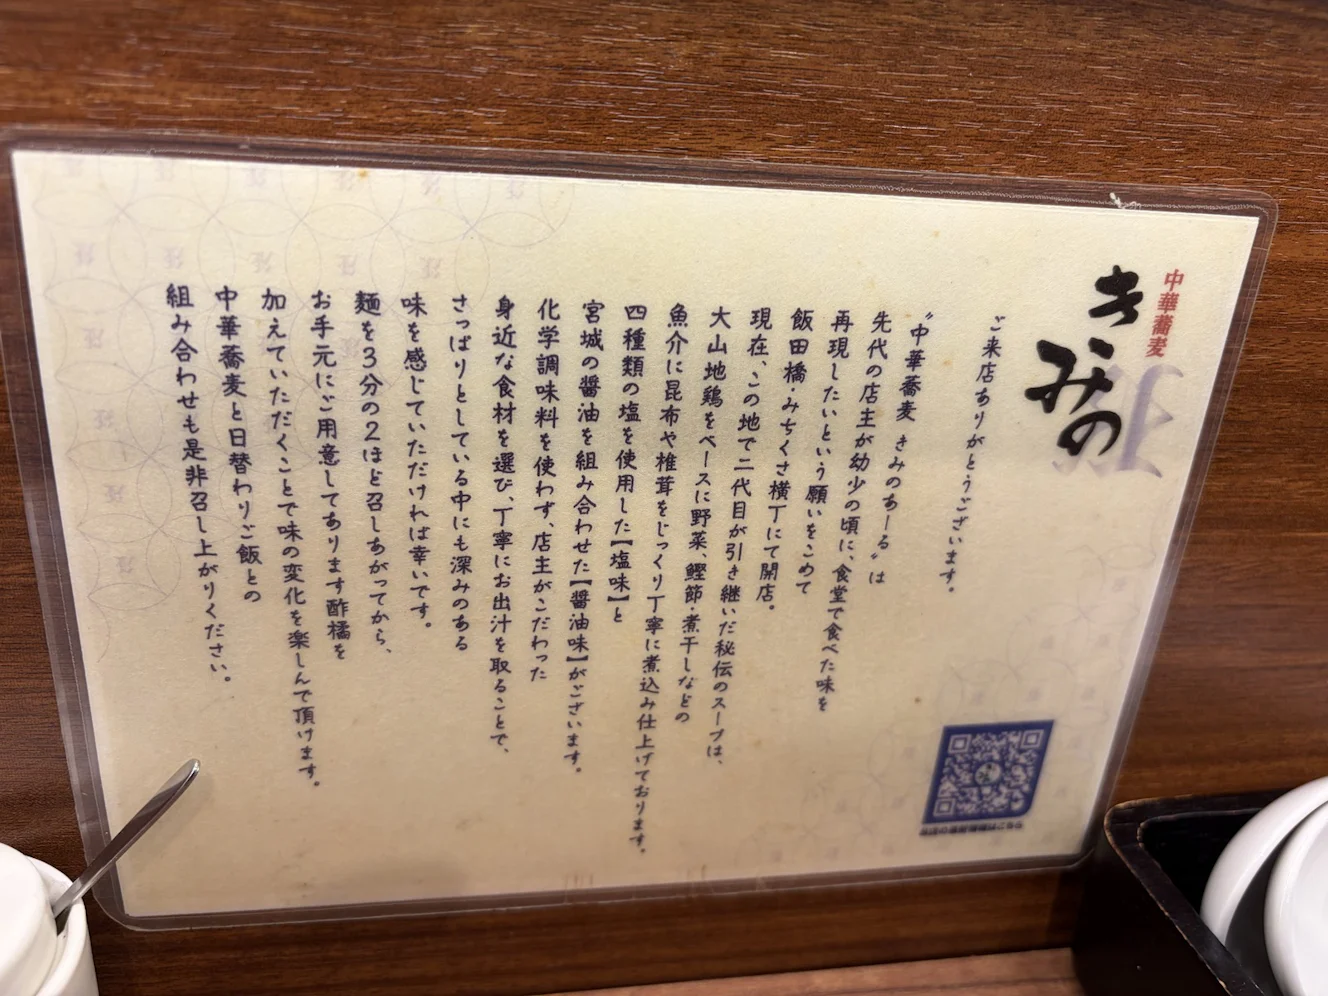 中華蕎麦
きみの
ご来店ありがとうございます。
"中華蕎麦 きみのあーる"は
先代の店主が幼少の頃に、食堂で食べた味を
再現したいという願いをこめて
飯田橋・みちくさ横丁にて開店。
現在、この地で二代目が引き継いだ秘伝のスープは、
大山地鶏をベースに野菜、鰹節・煮干しなどの
魚介に昆布や椎茸をじっくり丁寧に煮込み仕上げております。
四種類の塩を使用した【塩味】と
宮城の醤油を組み合わせた【醤油味】がございます。
化学調味料を使わず、店主がこだわった
身近な食材を選び、丁寧にお出汁を取ることで、
さっぱりとしている中にも深みのある
味を感じていただければ幸いです。
麺を3分の2ほど召しあがってから、
お手元にご用意してあります酢橘を
加えていただくことで味の変化を楽しんで頂けます。
中華蕎麦と日替わりご飯との
組み合わせも是非召し上がりください。